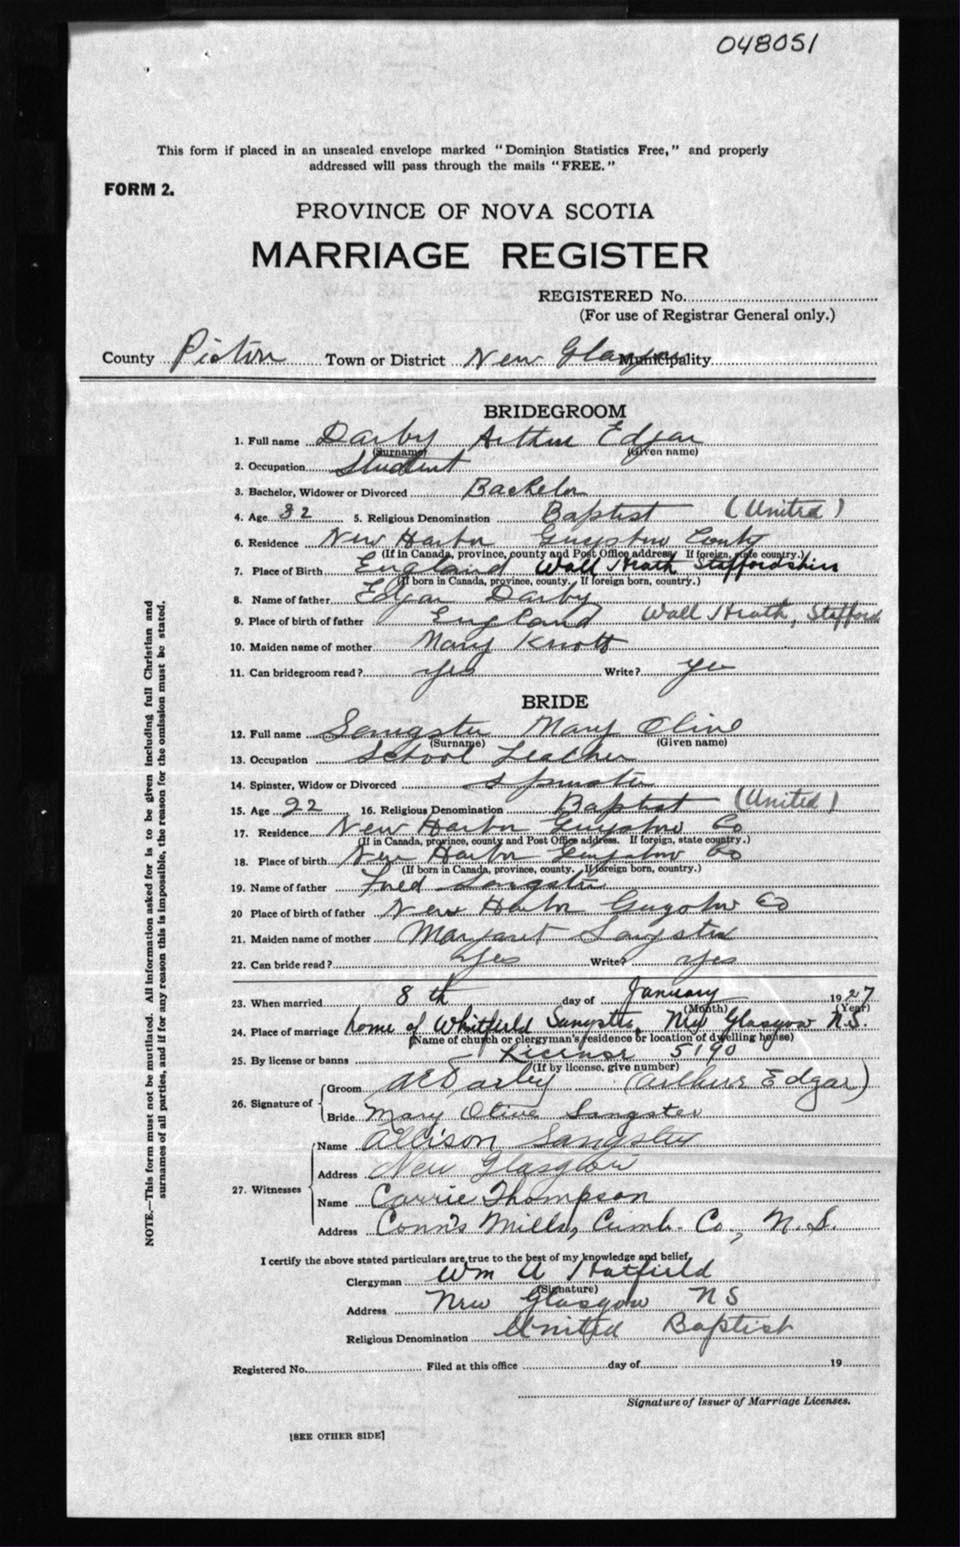 048051
This form if placed in an unsealed envelope marked "Dominion Statistics Free," and properly
addressed will pass through the mails "FREE."
FORM 2.
PROVINCE OF NOVA SCOTIA
MARRIAGE REGISTER
REGISTERED No.
(For use of Registrar General only.)
County Pictou Town or District New Glasgow Municipality
BRIDEGROOM
1. Full name Darby Arthur Edgar
(Surname) (Given name)
2. Occupation Student
3. Bachelor, Widower or Divorced Bachelor
4. Age 32 5. Religious Denomination Baptist (United)
6. Residence New Harbor Guysboro County
(If in Canada, province, county and Post Office address. If foreign, state country.)
7. Place of Birth England Wall Heath Staffordshire
(If born in Canada, province, county. If foreign born, country.)
8. Name of father Edgar Darby
9. Place of birth of father England Wall Heath, Stafford
10. Maiden name of mother Mary Knott
11. Can bridegroom read? yes Write? yes
BRIDE
12. Full name Sangster Mary Olive
(Surname) (Given name)
13. Occupation School Teacher
14. Spinster, Widow or Divorced Spinster
15. Age 22 16. Religious Denomination Baptist (United)
17. Residence New Harbor Guysboro Co
(If in Canada, province, county and Post Office address. If foreign, state country.)
18. Place of birth New Harbor Guysboro Co
(If born in Canada, province, county. If foreign born, country.)
19. Name of father Fred Sangster
20 Place of birth of father New Harbor Guysboro Co
21. Maiden name of mother Margaret Sangster
22. Can bride read? Yes Write? Yes
23. When married 8th day of January 1927
(Month) (Year)
24. Place of marriage home of Whitfield Sangster, New Glasgow N.S.
(Name of church or clergyman's residence or location of dwelling house)
25. By license or banns License 5190
(If by license, give number)
26. Signature of Groom A E Darby (Arthur Edgar)
Bride Mary Olive Sangster
27. Witnesses Name Allison Sangster
Address New Glasgow
Name Carrie Thompson
Address Conn's Mills, Cumb. Co., N.S.
I certify the above stated particulars are true to the best of my knowledge and belief,
Clergyman Wm A Hatfield
(Signature)
Address New Glasgow NS
Religious Denomination United Baptist
Registered No. Filed at this office day of 19
Signature of Issuer of Marriage Licenses.
[SEE OTHER SIDE]
NOTE.—This form must not be mutilated. All information asked for is to be given including full Christian and
surnames of all parties, and if for any reason this is impossible, the reason for the omission must be stated.